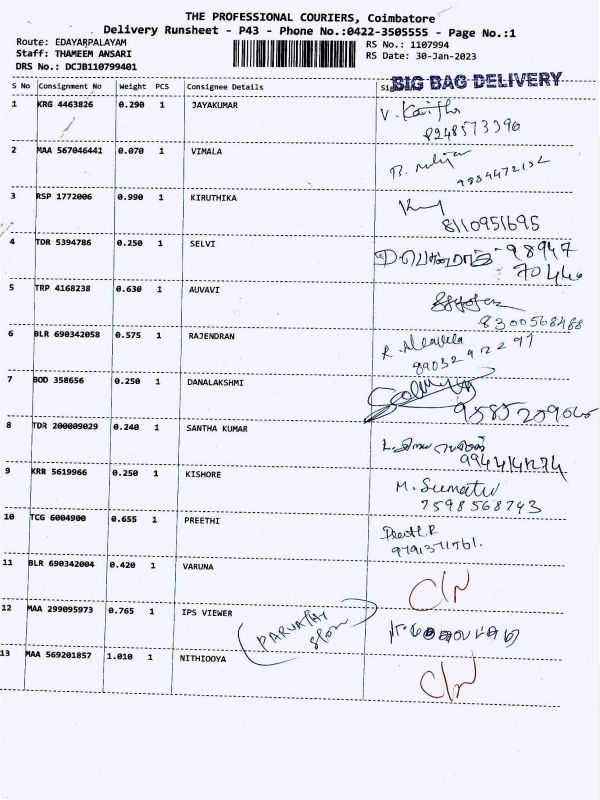 THE PROFESSIONAL COURIERS, Coimbatore
Delivery Runsheet - P43 - Phone No.:0422-3505555 - Page No.:1
Route: EDAYARPALAYAM RS No.: 1107994
Staff: THAMEEM ANSARI RS Date: 30-Jan-2023
DRS No.: DCJB110799401
BIG BAG DELIVERY
S No Consignment No Weight PCS Consignee Details
1 KRG 4463826 0.290 1 JAYAKUMAR V.
8248573390
2 MAA 567046441 0.070 1 VIMALA
9884472132
3 RSP 1772006 0.990 1 KIRUTHIKA
8110951695
4 TDR 5394786 0.250 1 SELVI 98947
70446
5 TRP 4168238 0.630 1 AUVAVI
8300568488
6 BLR 690342058 0.575 1 RAJENDRAN R.
8903292297
7 BOD 358656 0.250 1 DANALAKSHMI
8 TDR 200009029 0.240 1 SANTHA KUMAR
9 KRR 5619966 0.250 1 KISHORE M.
7598568743
10 TCG 6004900 0.655 1 PREETHI Preethi.R
11 BLR 690342004 0.420 1 VARUNA C/N
12 MAA 299095973 0.765 1 IPS VIEWER
PARVATHY
13 MAA 569201857 1.010 1 NITHIOOYA C/N